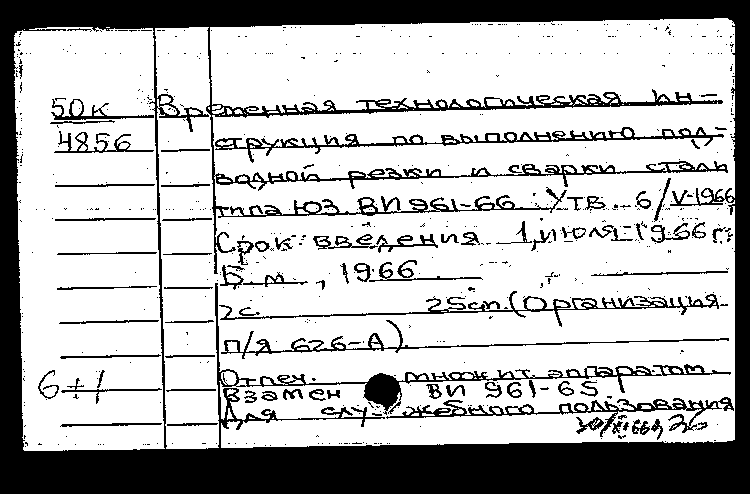 50к Временная технологическая ин-
4856 струкция по выполнению под-
водной резки и сварки сталь
типа ЮЗ. ВИ 961-66. Утв. 6/V-1966
Срок введения 1, июля 1966 г.
Б.м., 1966.
2с. 25см. (Организация
п/я 626-А).
6+1 Отпеч. множит. аппаратом.
Взамен ВИ 961-65
Для служебного пользования
36